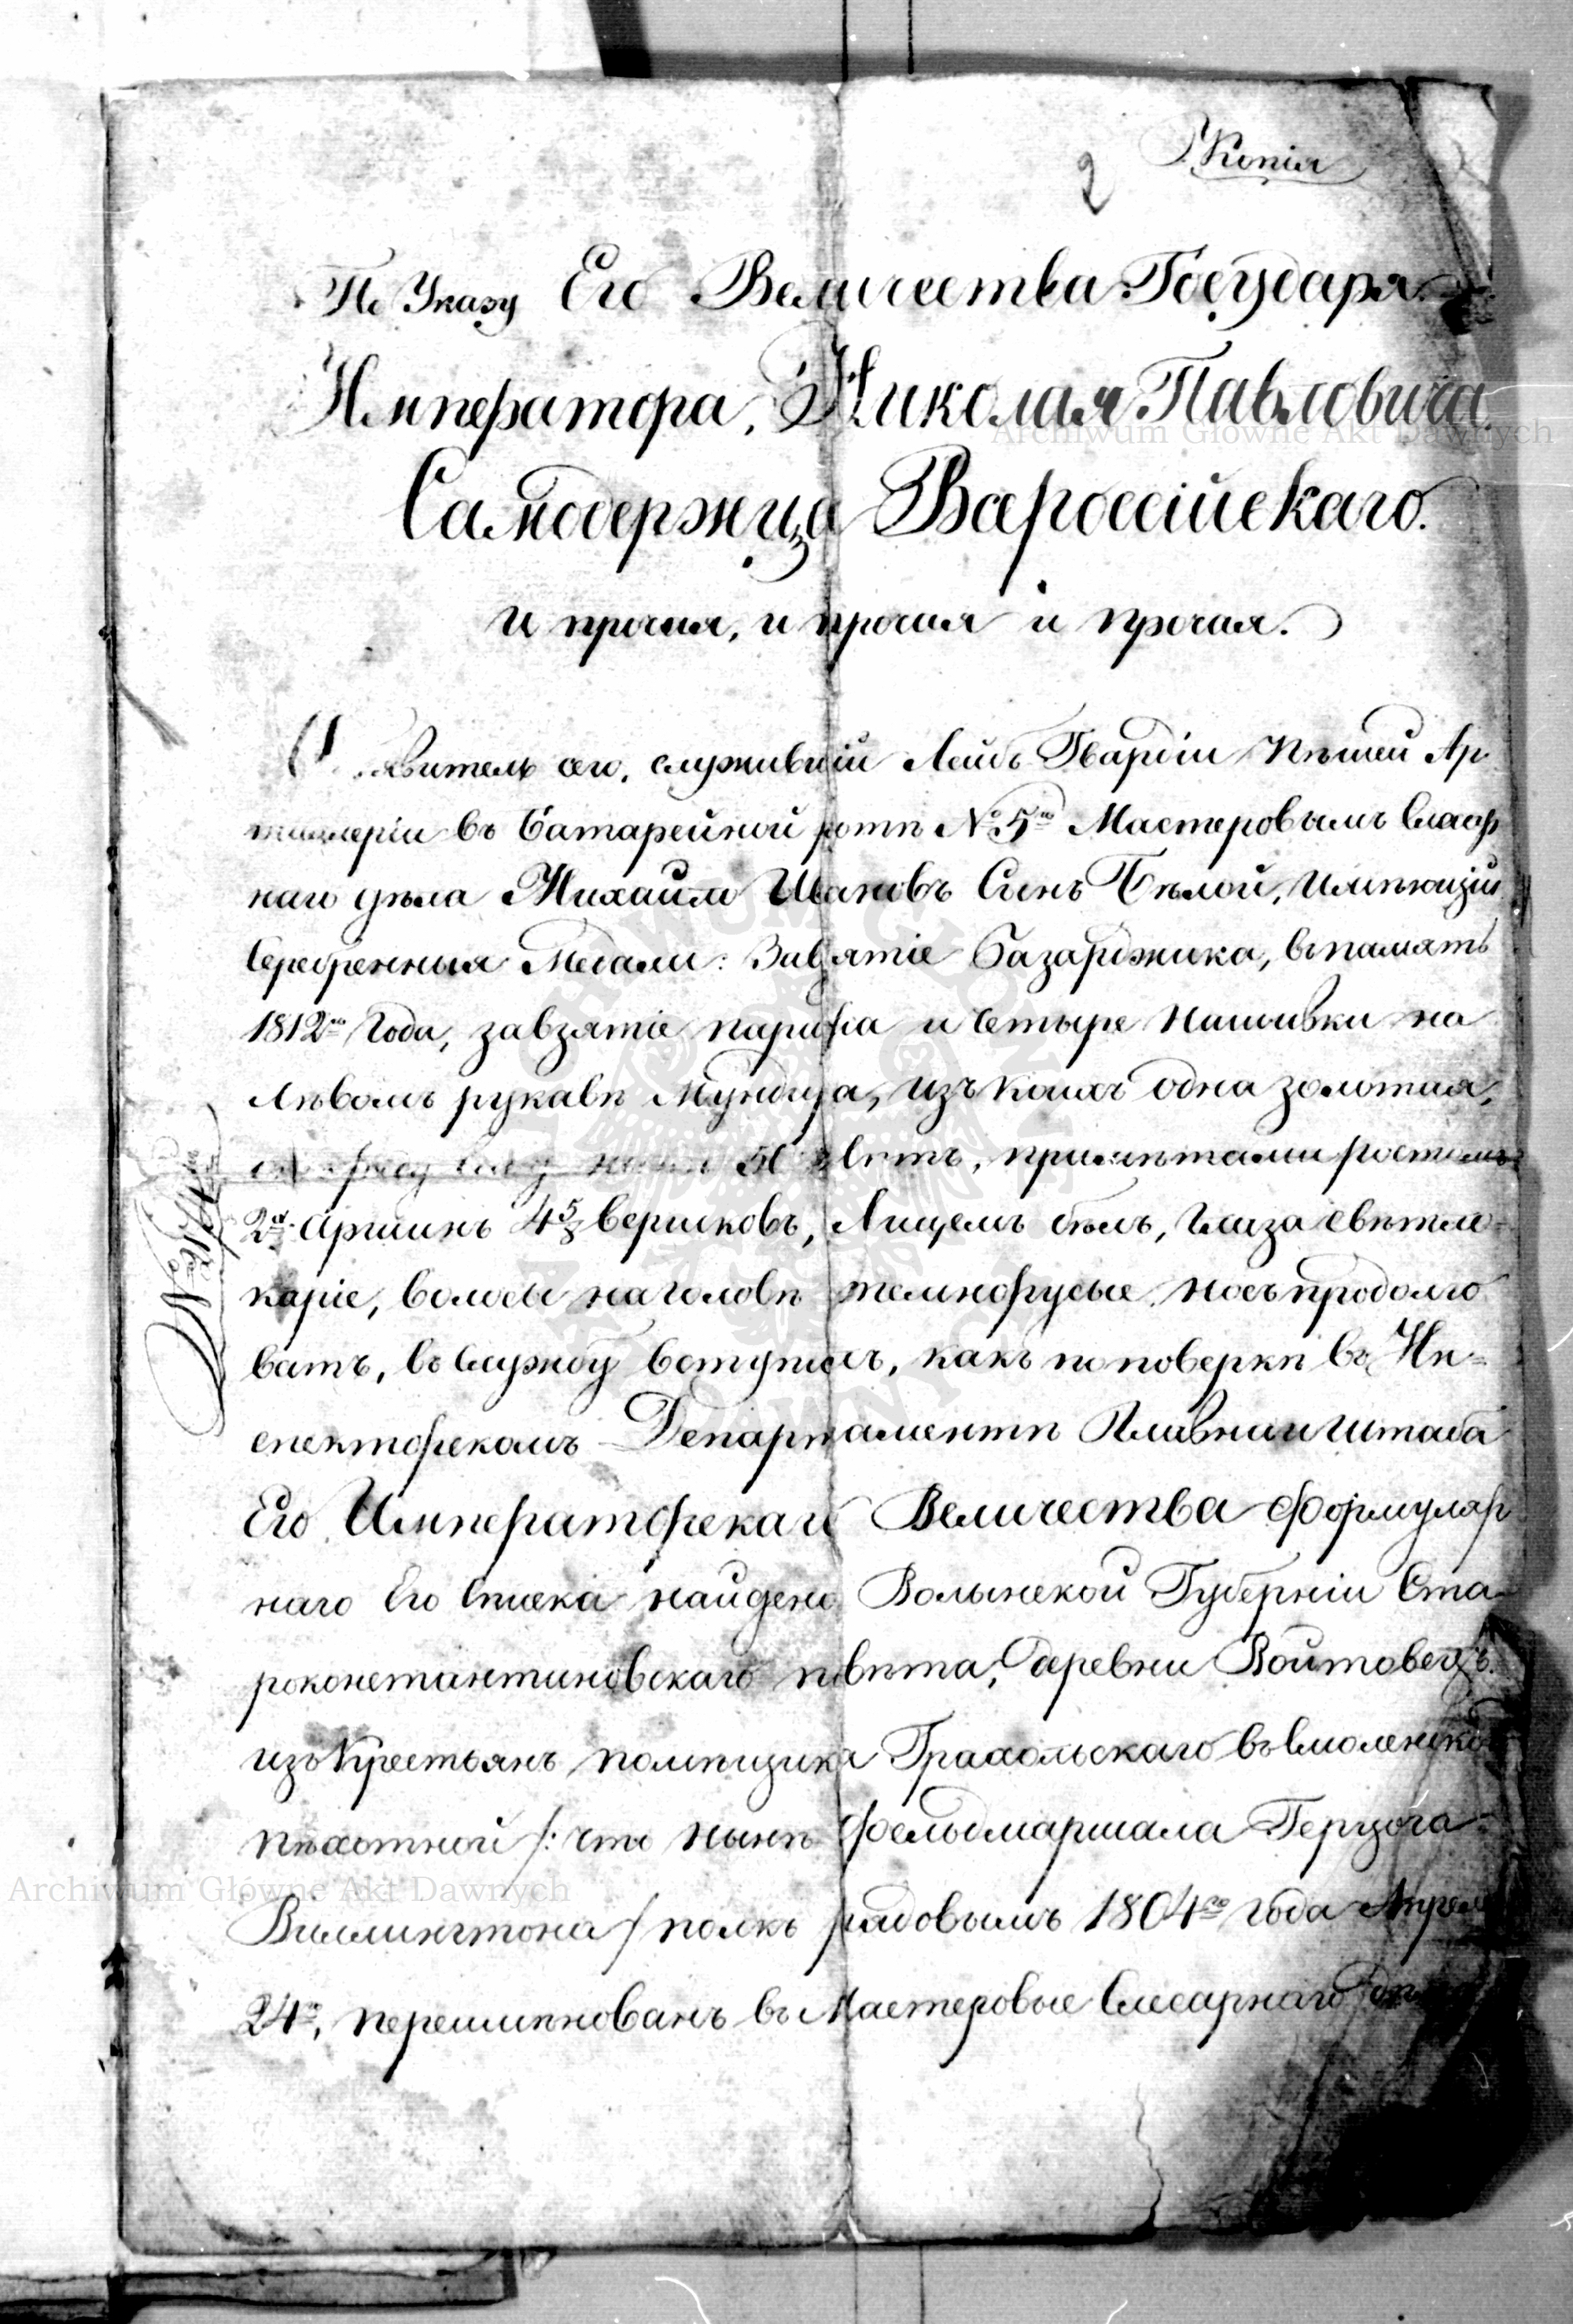 Копія
2
По Указу Его Величества Государя
Императора, Николая Павловича
Самодержца Всероссійскаго.
и прочая, и прочая и прочая.
сего, служившій Лейбъ Гвардіи Пѣшей Ар
тиллеріи въ Батарейной ротѣ № 5го Мастеровымъ Слесар
наго дѣла Михаило Ивановъ Сынъ Бѣлой, имѣющій
Серебренныя Медали: За взятіе Базарджика, въ память
1812го Года, за взятіе парижа и четыре нашивки на
лѣвомъ рукавѣ мундира, изъ коихъ одна золотая,
50 лѣтъ, примѣтами ростомъ
2х Аршинъ 4 5/8 вершковъ, Лицемъ бѣлъ, глаза свѣтло
каріе, волосы на головѣ темнорусые, носъ продолго
ватъ, въ службу вступилъ, какъ по поверкѣ въ Ин=
спекторскомъ Департаментѣ Главнаго Штаба
Его Императорскаго Величества Формуляр
наго Его Списка найдено Волынской Губерніи Ста
роконстантиновскаго повѣта, деревни Войтовецъ
изъ крестьянъ помѣщика Грахольскаго въ Смоленской
пѣхотной /: что нынѣ Фельдмаршала Герцога
Виллингтона / полкъ рядовымъ 1804го года Апреля
24го, переименованъ въ Мастеровые Слесарнаго
Archiwum Główne Akt Dawnych
Archiwum Główne Akt Dawnych
ARCHIWUM GŁÓWNE AKT DAWNYCH